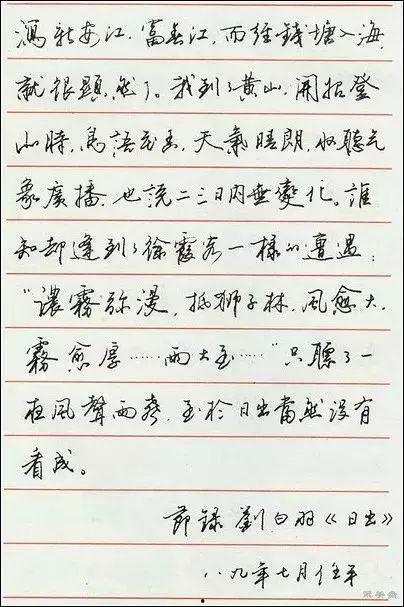 瀉新安江、富春江,而經錢塘入海,
就很顯然了。我到了黄山,開始登
山時,鳥語花香,天氣晴朗,收聽氣
象廣播,也説二三日内無變化。誰
知却逢到了徐霞客一樣的遭遇:
“濃霧弥漫,抵狮子林,風愈大,
霧愈厚……雨大至……”只聽了一
夜風聲雨聲,至於日出當然没有
看成。
節録 劉白羽《日出》
八九年七月任平